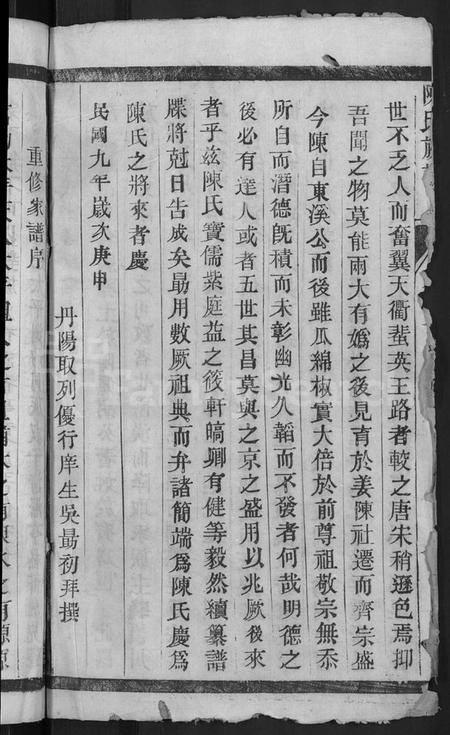 陳氏族
世不乏人而奮翼天衢蜚英王路者較之唐宋稍遜色焉抑
吾聞之物莫能兩大有媯之後見育於姜陳社遷而齊宗盛
今陳自東溪公而後雖瓜綿椒實大倍於前尊祖敬宗無忝
所自而潛德旣積而未彰幽光久韜而不發者何哉明德之
後必有達人或者五世其昌莫與之京之盛用以兆厥後來
者乎玆陳氏寶儒紫庭益之筱軒暠卿有健等毅然續纂譜
牒將尅日告成矣勗用數厥祖典而弁諸簡端爲陳氏慶爲
陳氏之將來者慶
民國九年歲次庚申
丹陽取列優行庠生吳勗初拜撰
重修家譜序